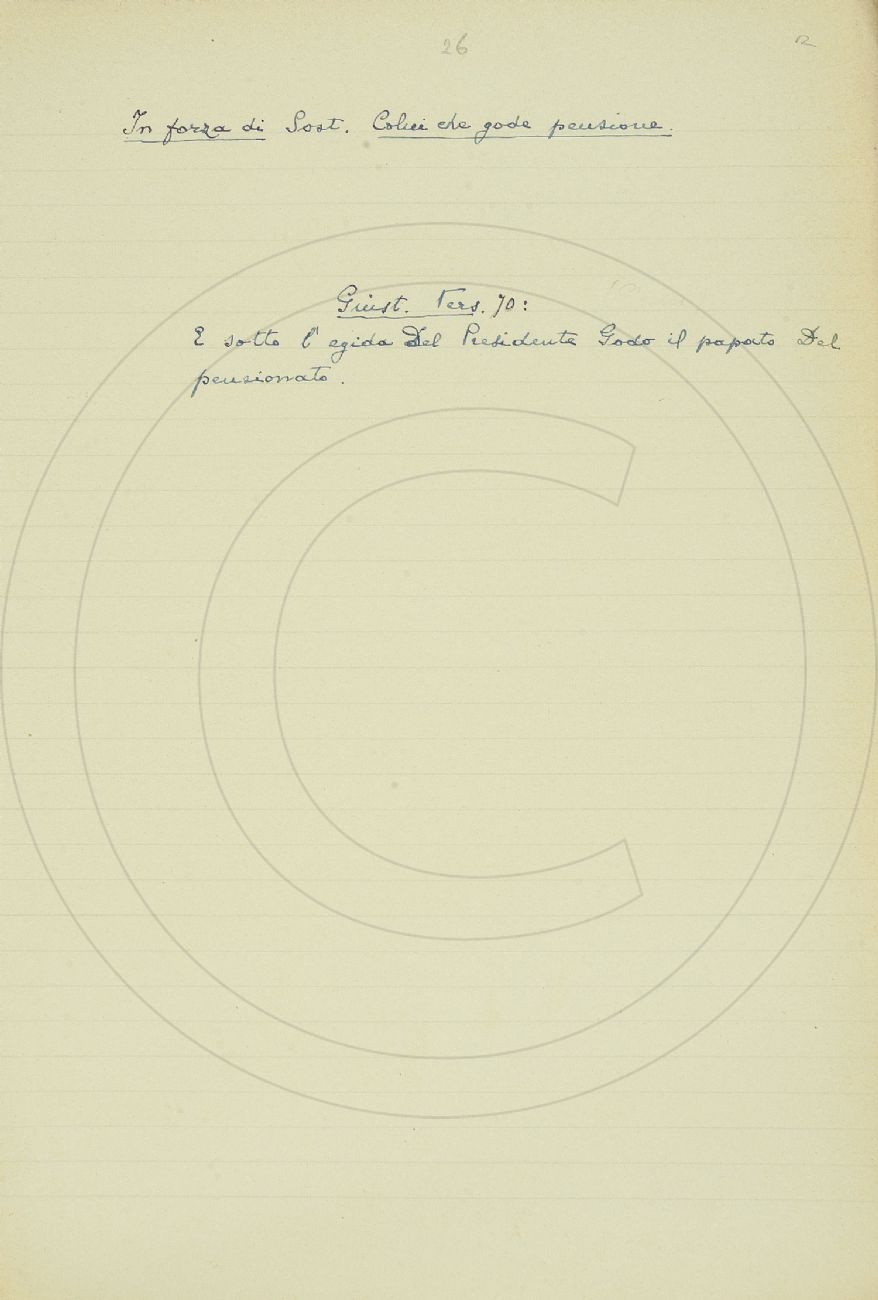 26
In forza di Sost. Colui che gode pensione.
Giust. Vers. 70:
E sotto l'egida Del Presidente Godo il papato Del
pensionato.